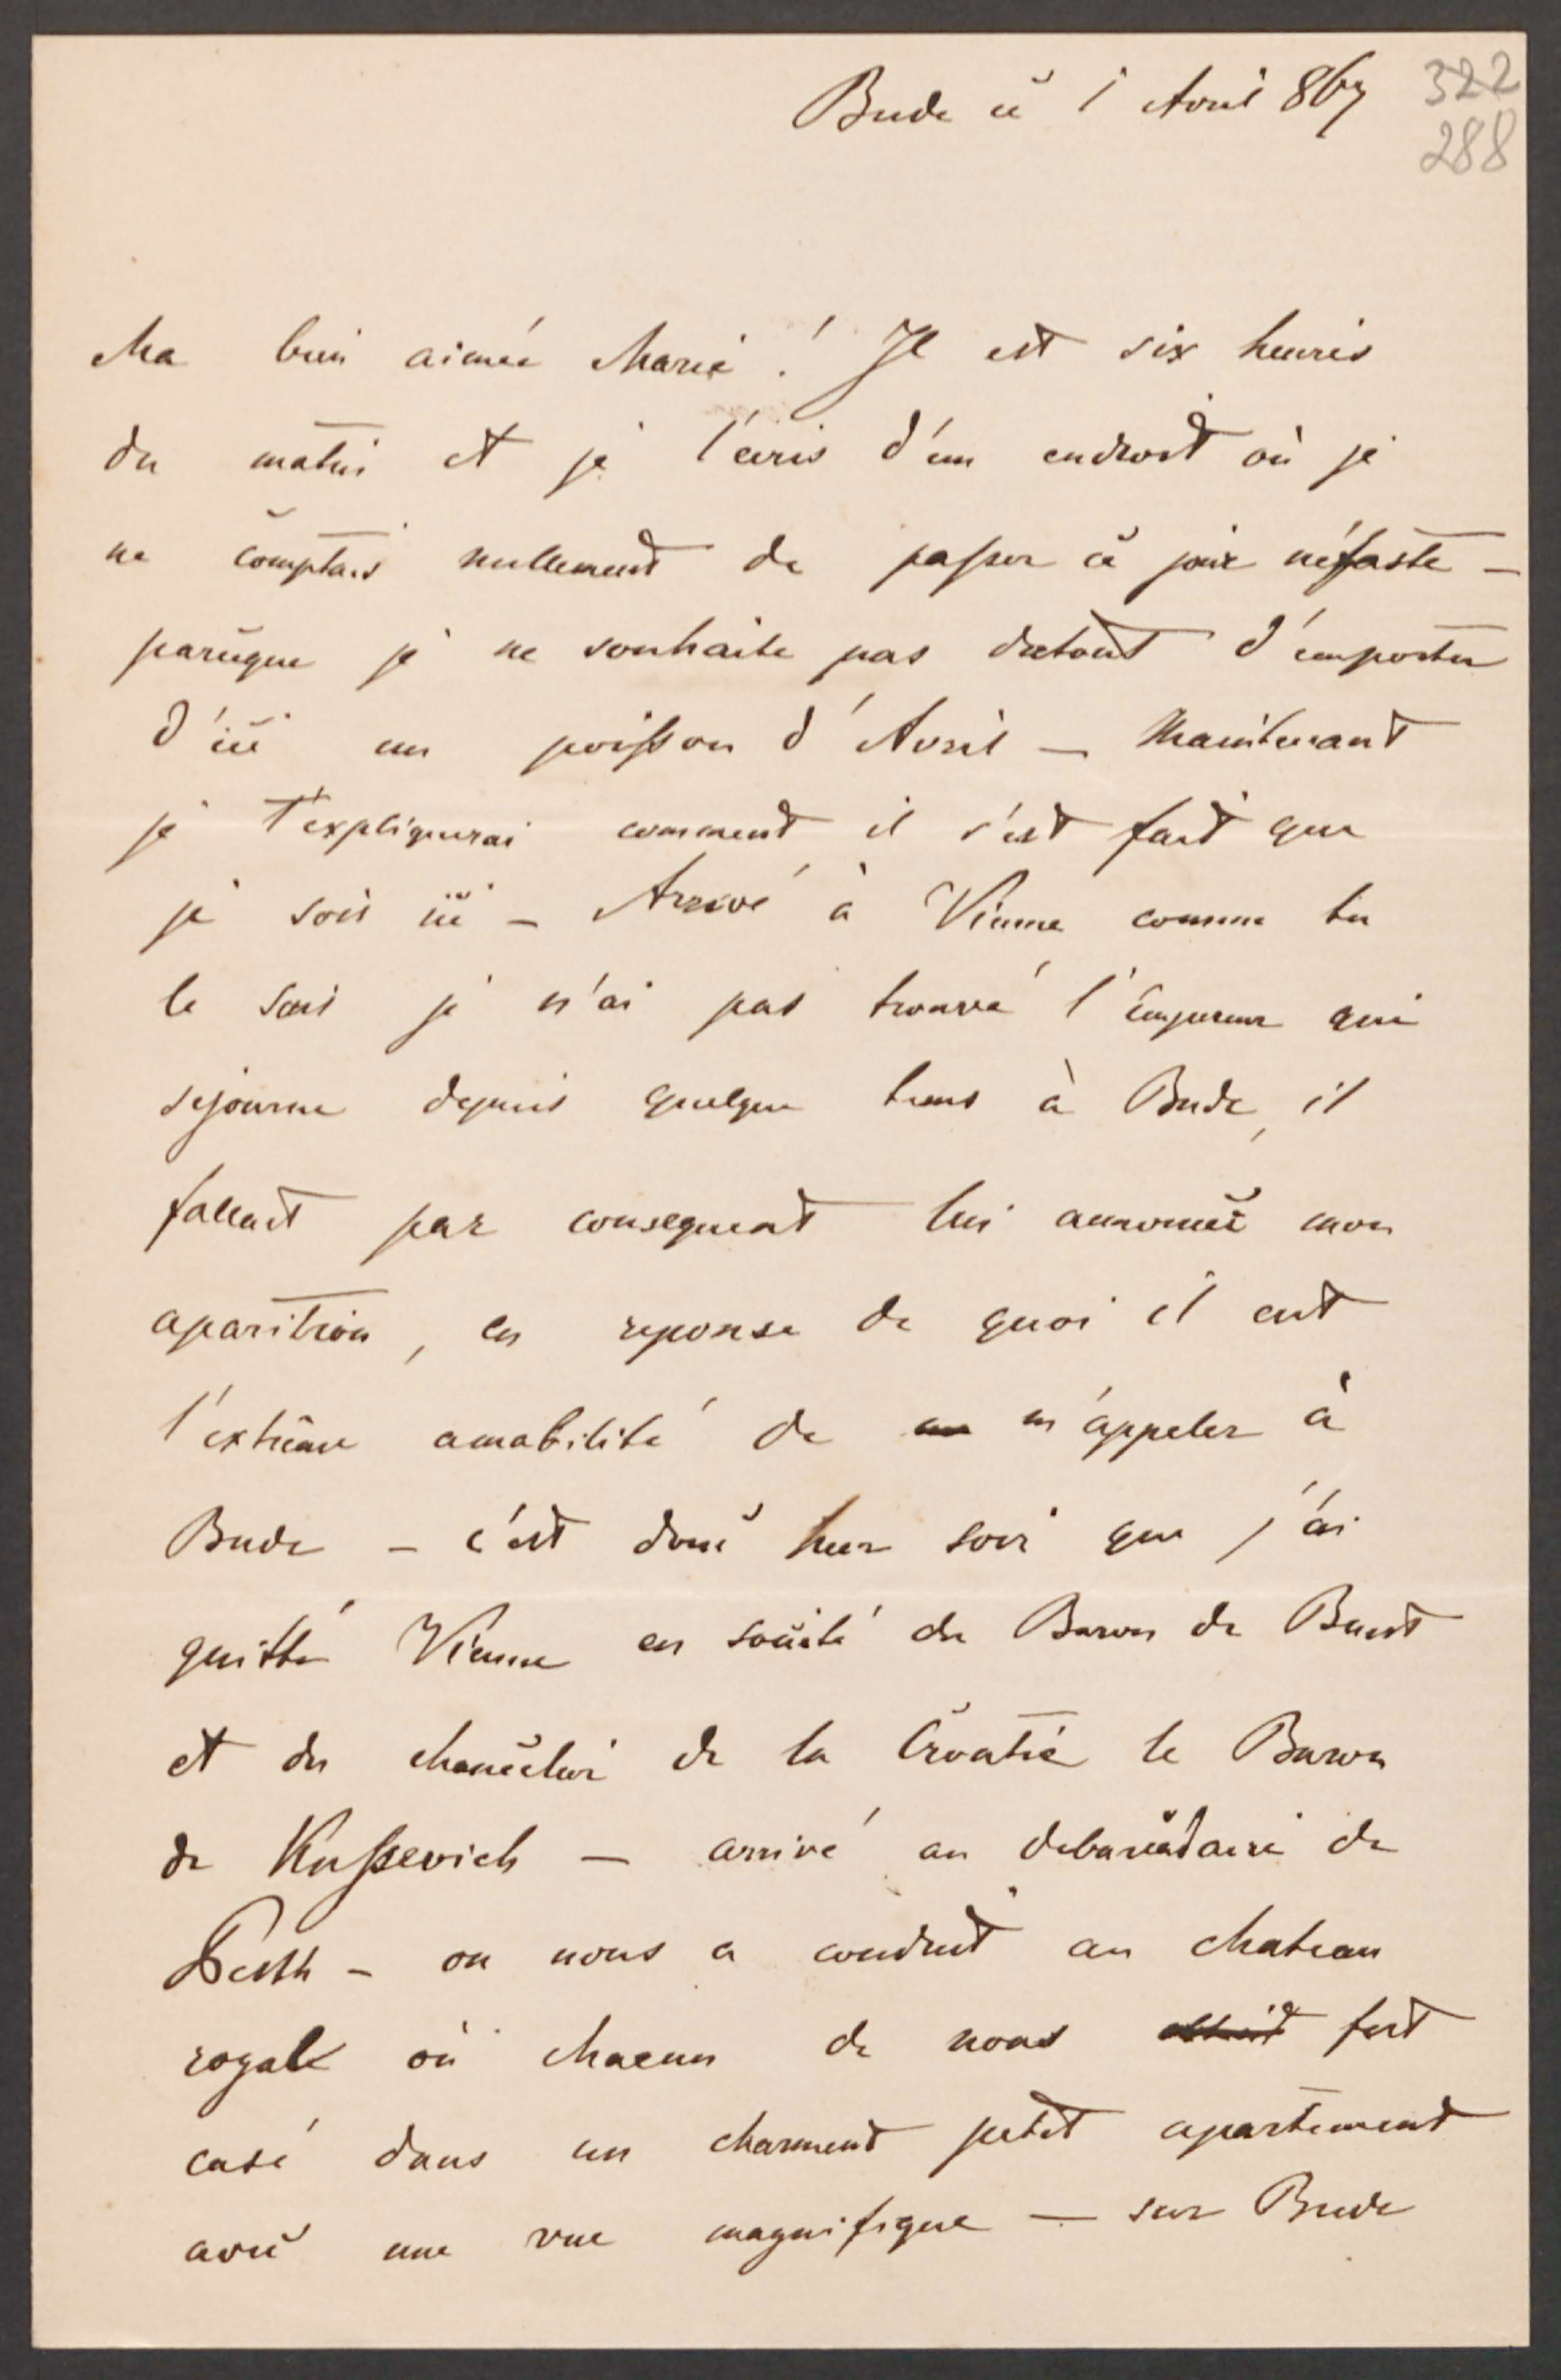 Bude ce 1 Avril 867
322
288
Ma bien aimée Marie! Il est six heures
du matin et je t'ecris d'un endroit où je
ne comptais nullement de passer ce jour néfaste —
parceque je ne souhaite pas dutout d'emporter
d'ici un poisson d'Avril — Maintenant
je t'expliquerai comment il s'est fait que
je sois ici — Arrivé à Vienne comme tu
le sais je n'ai pas trouvé l'Empereur qui
sejourne depuis quelque tems à Bude, il
fallait par consequent lui annoncer mon
aparition, en reponse de quoi il eut
l'extrème amabilité de m'appeler à
Bude — c'est donc hier soir que j'ai
quitté Vienne en société du Baron de Beust
et du chancelier de la Croatie le Baron
de Kussevich — arrivé au debarcadaire de
Pesth — on nous a conduit au chateau
royale où chacun de nous fut
casé dans un charment petit apartement
avec une vue magnifique — sur Bude